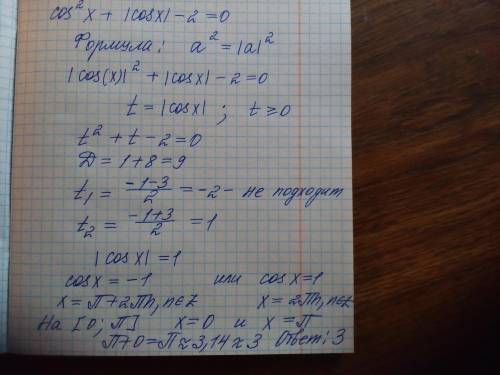 cos²x + |cosx| - 2 = 0
Формула: a² = |a|²
|cos(x)|² + |cosx| - 2 = 0
t = |cosx| ; t ≥ 0
t² + t - 2 = 0
D = 1 + 8 = 9
t₁ = (-1-3)/2 = -2 - не подходит
t₂ = (-1+3)/2 = 1
|cosx| = 1
cosx = -1 или cosx = 1
x = π + 2πn, n∈Z x = 2πn, n∈Z
На [0; π] x = 0 и x = π
π+0 = π ≈ 3,14 ≈ 3 Ответ: 3